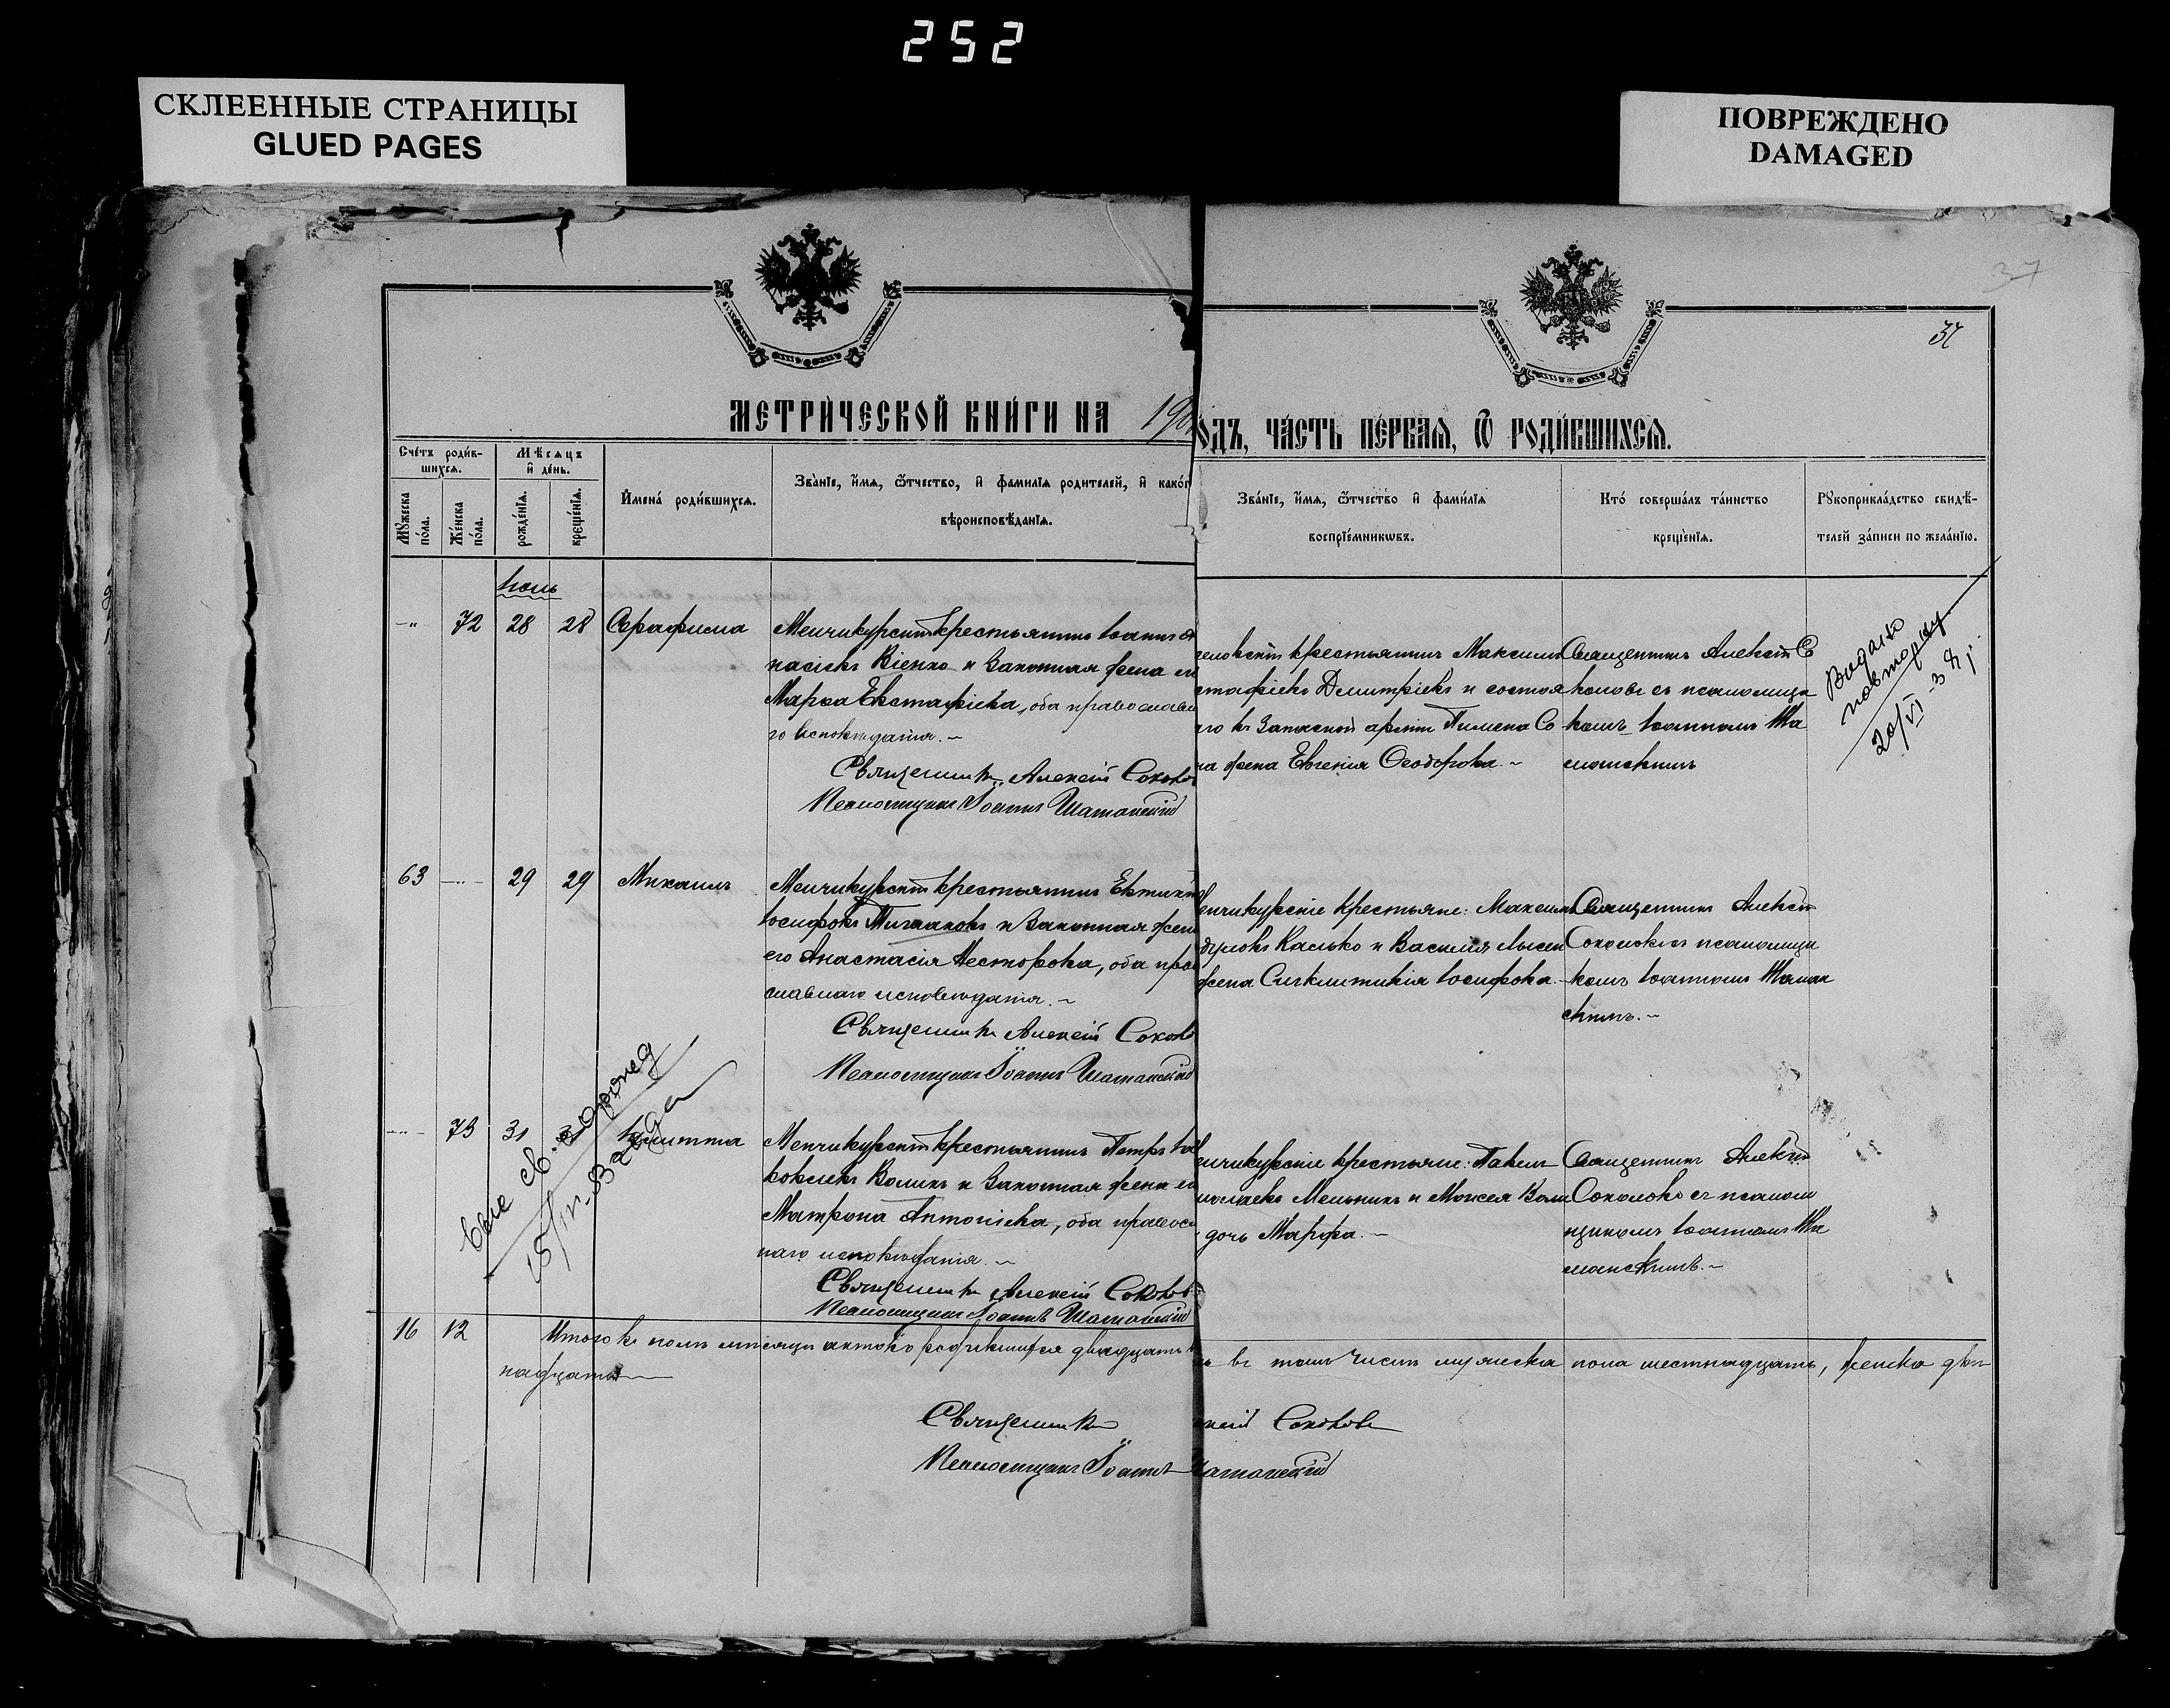 252
СКЛЕЕННЫЕ СТРАНИЦЫ
GLUED PAGES
ПОВРЕЖДЕНО
DAMAGED
37
37
МЕТРИ́ЧЕСКОЙ КНИ́ГИ НА 190
ОДЪ, ЧА́СТЬ ПЕ́РВАЯ, Ѿ РОДИ́ВШИХСЯ.
Сче́тъ роди́в-
шихся.
Мѣ́сяцъ
и҆ де́нь.
Мꙋжеска по́ла.
Же́нска по́ла.
рожде́нїѧ.
креще́нїѧ.
И҆мена́ роди́вшихся.
Зва́нїе, и҆́мя, ѻ҆́тчество, и҆ фамилїѧ родителей, и҆ како́г
вѣроисповѣ́данїѧ.
Зва́нїе, и҆́мя, ѻ҆́тчество и҆ фами́лїѧ
воспрїе́мникѡвъ.
Кто̀ соверша́лъ та́инство
креще́нїѧ.
Рꙋкоприкла́дство свидѣ́-
телей за́писи по жела́нїю.
Іюль
72 28 28 Серафима
Менчикурскій крестьянинъ Іоаннъ А
насіевъ Віенко и Законная жена ег
Марѳа Евстафіева, оба православн
го исповѣданія.
Священникъ Алексій Соколов
Псаломщикъ Іоаннъ Шаманскій
крестьянинъ Максимъ
стафіевъ Димитріевъ и состоя
го въ Запасной арміи Пимена Со
на жена Евгенія Ѳеодорова.
Священникъ Алексій Со
коловъ съ псаломщи
комъ Іоанномъ Ша
манскимъ
Выдано
повторну
20/VI-3
63 29 29 Михаилъ
Менчикурскій крестьянинъ Евтихій
Іосифовъ и Законная жен
его Анастасія Несторова, оба прав
славнаго исповѣданія.
Священникъ Алексій Соколо
Псаломщикъ Іоаннъ Шаманскій
енчикурскіе крестьяне: Максим
Касько и Василія Лысен
жена Синклитикія Іосифова.
Священникъ Алексій
Соколовъ съ псаломщи
комъ Іоанномъ Шаман
скимъ.
73 31 31 Іулитта
Менчикурскій крестьянинъ Петръ Іа
ковлевъ Воликъ и Законная жена ег
Матрона Антоніева, оба правос
наго исповѣданія.
Священникъ Алексій Соколов
Псаломщикъ Іоаннъ Шаманскій
енчикурскіе крестьяне: Павелъ
колаевъ Мельникъ и Моисея Воли
дочь Марфа.
Священникъ Алексій
Соколовъ съ псалом
щикомъ Іоанномъ Ша
манскимъ.
св. о рожд
15/IV-83 года
16 12 Итого въ іюлѣ мѣсяцѣ актовъ родившихся двадцать в
ь въ томъ числѣ мужеска пола шестнадцать, женска двѣ
надцать
Священникъ ексій Соколовъ
Псаломщикъ Іоаннъ Шаманскій